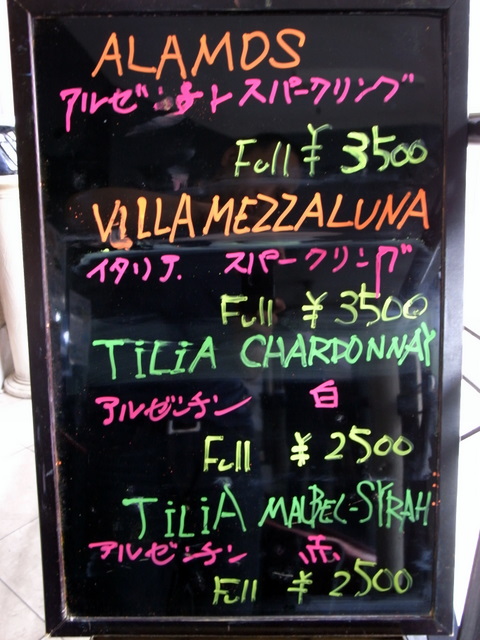 ALAMOS
アルゼンチン スパークリング
Full ¥3500
VILLA MEZZALUNA
イタリア. スパークリング
Full ¥3500
TiLiA CHARDONNAY
アルゼンチン 白
Full ¥2500
TiLiA MALBEC-SYRAH
アルゼンチン 赤
Full ¥2500